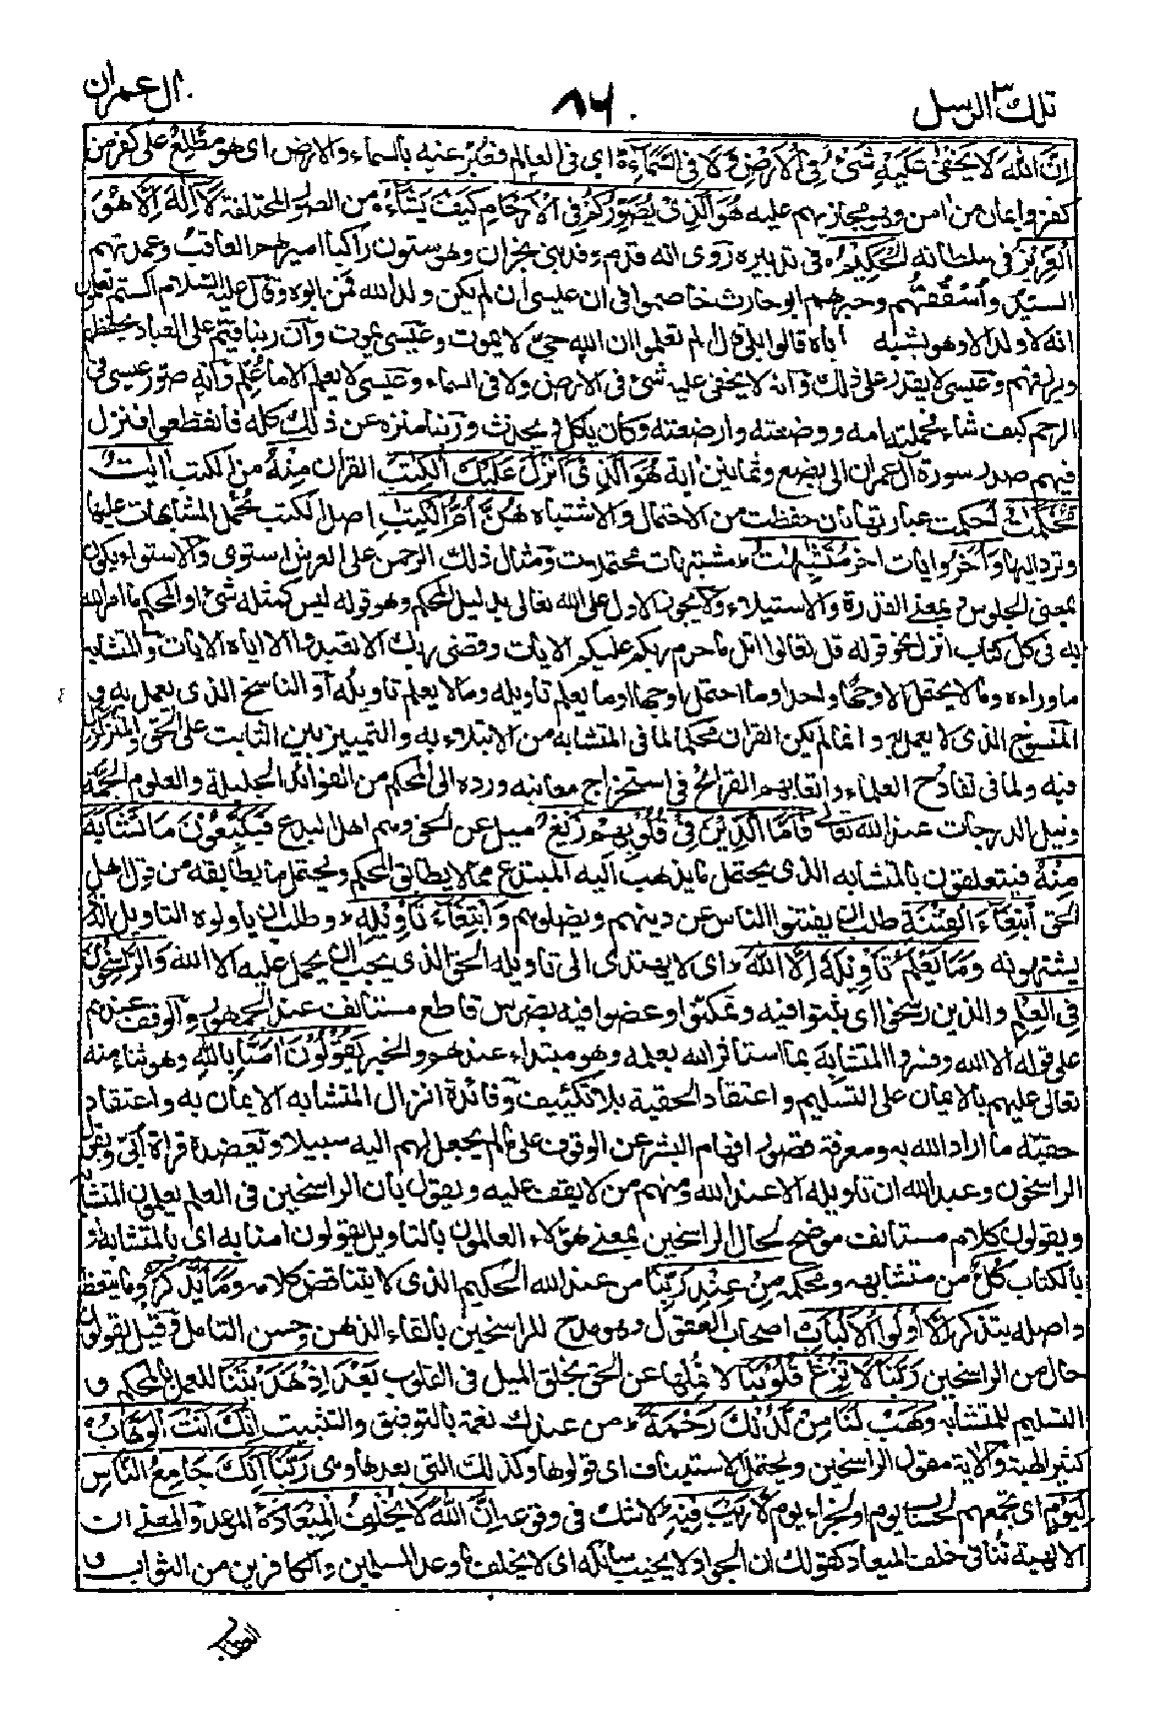 تلك الرسل ٣
٨٦
ال عمران
اِنَّ اللّٰهَ لَا يَخْفٰى عَلَيْهِ شَيْءٌ فِي الْاَرْضِ وَلَا فِي السَّمَآءِ اى فى العالم فعبر عنه بالسماء والارض اى هو مطلع على كفر من
كفر وايمان من امن وهو مجازيهم عليه هُوَ الَّذِيْ يُصَوِّرُكُمْ فِي الْاَرْحَامِ كَيْفَ يَشَآءُ من الصور المختلفة لَآ اِلٰهَ اِلَّا هُوَ
الْعَزِيْزُ فى سلطانه الْحَكِيْمُ فى تدبيره روى انه قدم وفد بنى نجران وهم ستون راكبا اميرهم العاقب وعمدتهم
السيد واسقفهم وحبرهم ابو حارث خاصموا فى ان عيسى ان لم يكن ولد الله فمن ابوه وقال عليه السلام الستم تعلمون
انه لا ولد الا وهو يشبه اباه قالوا بلى قال الم تعلموا ان الله حى لا يموت وعيسى يموت وان ربنا قيم على العباد يحفظهم
ويرزقهم وعيسى لا يقدر على ذلك وانه لا يخفى عليه شئ فى الارض ولا فى السماء وعيسى لا يعلم الا ما علم وانه صور عيسى فى
الرحم كيف شاء فحملته امه ووضعته وارضعته وكان ياكل ويحدث وربنا منزه عن ذلك كله فانقطعوا فنزل
فيهم صدر سورة ال عمران الى بضع وثمانين اية هُوَ الَّذِيْٓ اَنْزَلَ عَلَيْكَ الْكِتٰبَ القران مِنْهُ من الكتب اٰيٰتٌ
مُّحْكَمٰتٌ احكمت عبارتها بان حفظت من الاحتمال والاشتباه هُنَّ اُمُّ الْكِتٰبِ اصل الكتب تحمل المتشابهات عليها
وترد اليها وَاُخَرُ وايات اخر مُتَشٰبِهٰتٌ مشتبهات محتملات ومثال ذلك الرحمن على العرش استوى والاستواء يكون
بمعنى الجلوس وبمعنى القدرة والاستيلاء ولا يجوز الاول على الله تعالى بدليل المحكم وهو قوله ليس كمثله شئ او المحكم ما امر الله
به فى كل كتاب انزل نحو قوله قل تعالوا اتل ما حرم ربكم عليكم الايات وقضى ربك الا تعبدوا الا اياه الايات والمتشابه
ما وراءه وما لا يحتمل الا وجها واحدا وما احتمل اوجها او ما يعلم تاويله وما لا يعلم تاويله او الناسخ الذى يعمل به و
المنسوخ الذى لا يعمل به وانما لم يكن القران محكما لما فى المتشابه من الابتلاء به والتمييز بين الثابت على الحق والمتزلزل
فيه ولما فى تقادح العلماء واتعابهم القرائح فى استخراج معانيه ورده الى المحكم من الفوائد الجليلة والعلوم الجمة
ونيل الدرجات عند الله تعالى فَاَمَّا الَّذِيْنَ فِيْ قُلُوْبِهِمْ زَيْغٌ ميل عن الحق وهم اهل البدع فَيَتَّبِعُوْنَ مَا تَشَابَهَ
مِنْهُ فيتعلقون بالمتشابه الذى يحتمل ما يذهب اليه المبتدع مما لا يطابق المحكم ويحتمل ما يطابقه من قول اهل
الحق ابْتِغَآءَ الْفِتْنَةِ طلب ان يفتنوا الناس عن دينهم ويضلوهم وَابْتِغَآءَ تَاْوِيْلِهٖ وطلب ان ياولوه التاويل الذى
يشتهونه وَمَا يَعْلَمُ تَاْوِيْلَهٗٓ اِلَّا اللّٰهُ اى لا يهتدى الى تاويله الحق الذى يجب ان يحمل عليه الا الله وَالرّٰسِخُوْنَ
فِي الْعِلْمِ والذين رسخوا اى ثبتوا فيه وتمكنوا وعضوا فيه بضرس قاطع مستانف عند الجمهور والوقف عندهم
على قوله الا الله وفسروا المتشابه بما استاثر الله بعلمه وهو مبتداء عندهم والخبر يَقُوْلُوْنَ اٰمَنَّا بِاللّٰهِ وهو ثناء منه
تعالى عليهم بالايمان على التسليم واعتقاد الحقية بلا تكييف وفائدة انزال المتشابه الايمان به واعتقاد
حقية ما اراد الله به ومعرفة قصور افهام البشر عن الوقوف على ما لم يجعل لهم اليه سبيلا وتعضده قراة ابى ويقول
الراسخون وعبد الله ان تاويله الا عند الله ومنهم من لا يقف عليه ويقول بان الراسخين فى العلم يعلمون المتشابه
ويقولون كلام مستانف موضح لحال الراسخين بمعنى هؤلاء العالمون بالتاويل يقولون امنا به اى بالمتشابه او
بالكتاب كُلٌّ من متشابهه ومحكمه مِنْ عِنْدِ رَبِّنَا من عند الله الحكيم الذى لا يتناقض كلامه وَمَا يَذَّكَّرُ وما يتعظ
واصله يتذكر اِلَّآ اُولُوا الْاَلْبَابِ اصحاب العقول وهو مدح للراسخين بالقاء الذهن وحسن التامل وقيل يقولون
حال من الراسخين رَبَّنَا لَا تُزِغْ قُلُوْبَنَا لا تملها عن الحق بخلق الميل فى القلوب بَعْدَ اِذْ هَدَيْتَنَا للعمل بالمحكم و
التسليم للمتشابه وَهَبْ لَنَا مِنْ لَّدُنْكَ رَحْمَةً من عندك نعمة بالتوفيق والتثبيت اِنَّكَ اَنْتَ الْوَهَّابُ
كثير الهبة والاية مقول الراسخين ويحتمل الاستيناف اى قولوها وكذلك التى بعدها وهى رَبَّنَآ اِنَّكَ جَامِعُ النَّاسِ
لِيَوْمٍ اى تجمعهم لحساب يوم او لجزاء يوم لَّا رَيْبَ فِيْهِ لا شك فى وقوعه اِنَّ اللّٰهَ لَا يُخْلِفُ الْمِيْعَادَ الموعد والمعنى ان
الالهية تنافى خلف الميعاد كقولك ان الجواد لا يخيب سائله اى لا يخلف ما وعد المسلمين والكافرين من الثواب و